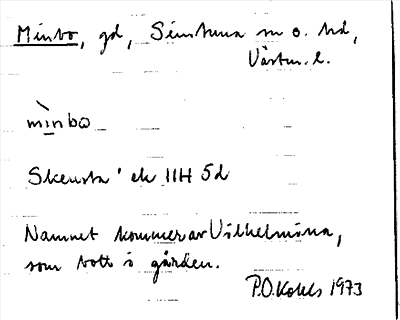 Minbo, gd, Simtuna sn o. hd,
Västm. l.
mìnbω
Skensta' ek 11H 5d
Namnet kommer av Vilhelmina,
som bott i gården.
P.O. Kohls 1973